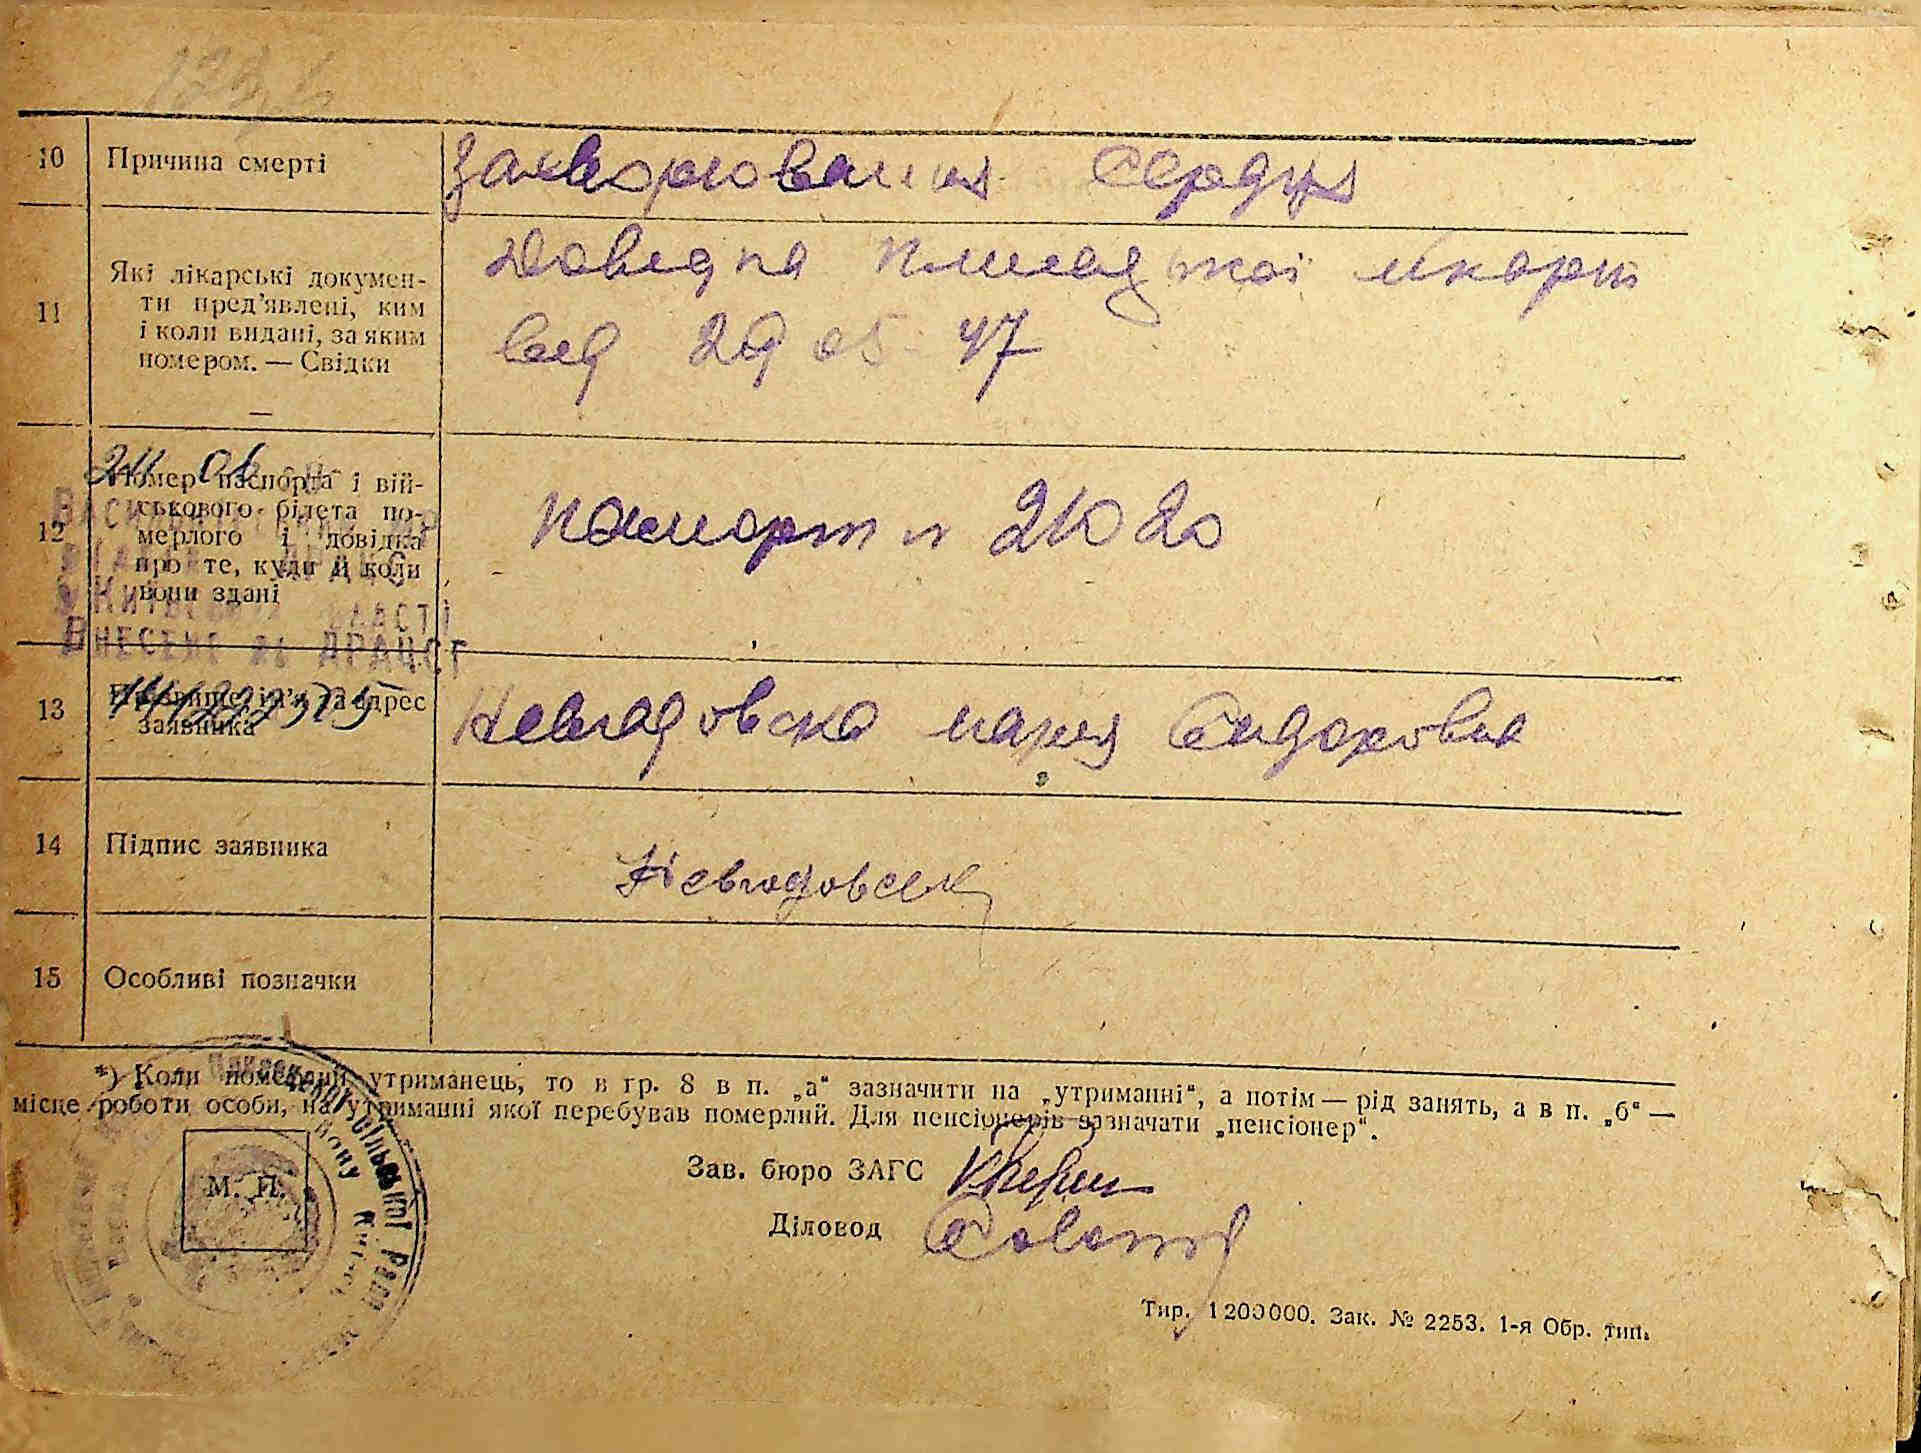 10 Причина смерті захворювання серця
11 Які лікарські докумен-
ти пред'явлені, ким
і коли видані, за яким
номером. — Свідки
Довідка
від 29 05 47
12 Номер паспорта і вій-
ськового білета по-
мерлого і довідка
про те, куди й коли
вони здані
паспорт н 21020
ВНЕСЕНЕ ДРАЦСГ
13 Прізвище, ім'я та адрес
заявника
Невгадовска мария Сидоровна
14 Підпис заявника Невгодовск
15 Особливі позначки
*) Коли померлий утриманець, то в гр. 8 в п. „а“ зазначити на „утриманні“, а потім — рід занять, а в п. „б“ —
місце роботи особи, на утриманні якої перебував померлий. Для пенсіонерів зазначати „пенсіонер“.
М. П.
Зав. бюро ЗАГС
Діловод
Тир. 1200000. Зак. № 2253. 1-я Обр. тип.